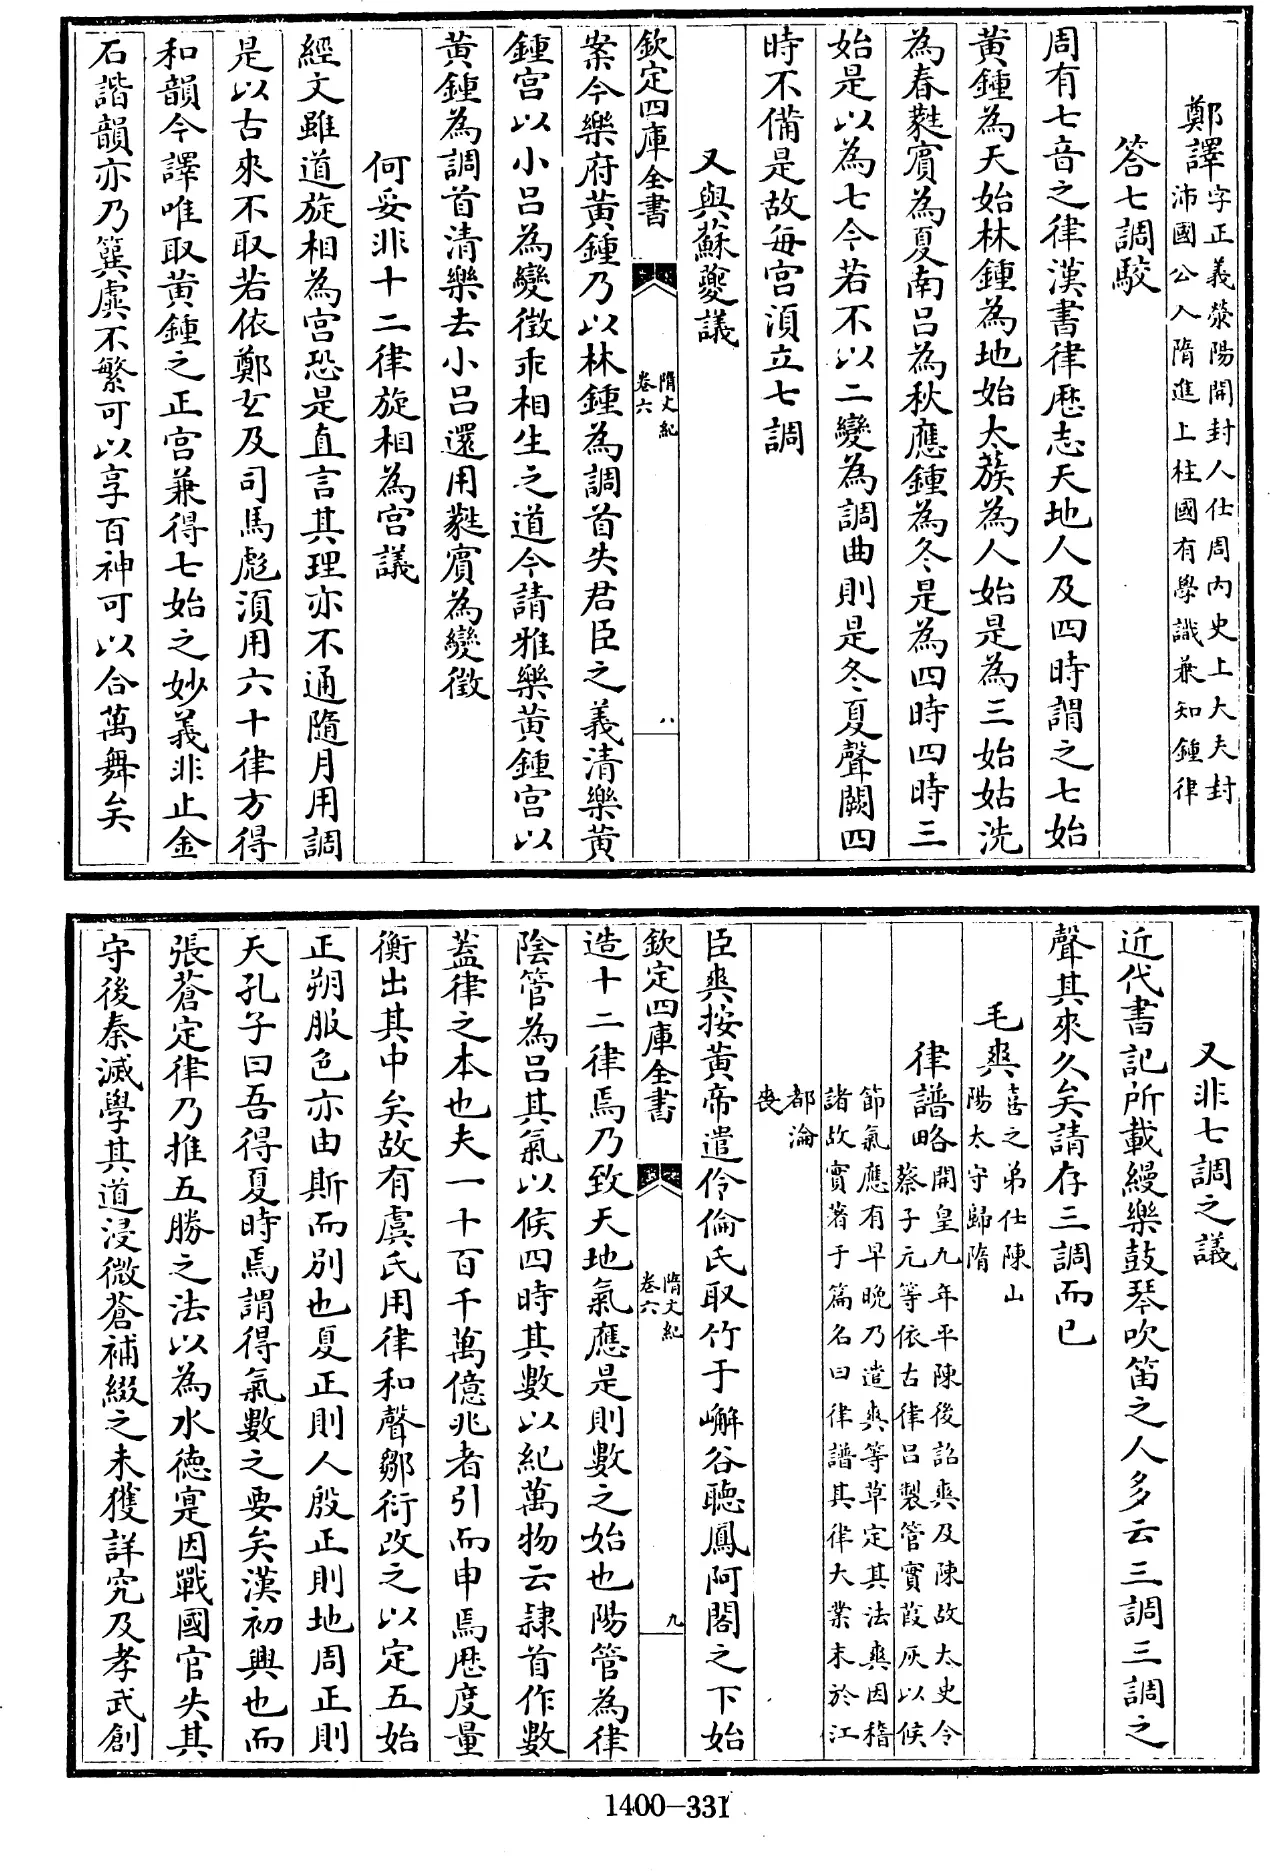 鄭譯字正義滎陽開封人仕周内史上大夫封
沛國公入隋進上柱國有學識兼知鍾律
答七調駮
周有七音之律漢書律厯志天地人及四時謂之七始
黄鍾為天始林鍾為地始太蔟為人始是為三始姑洗
為春蕤賓為夏南吕為秋應鍾為冬是為四時四時三
始是以為七今若不以二變為調曲則是冬夏聲闕四
時不備是故每宫湏立七調
又與蘇夔議
欽定四庫全書
隋文紀
卷六
八
案今樂府黄鍾乃以林鍾為調首失君臣之義清樂黄
鍾宫以小吕為變徵乖相生之道今請雅樂黄鍾宫以
黄鍾為調首清樂去小吕還用蕤賓為變徵
何妥非十二律旋相為宫議
經文雖道旋相為宫恐是直言其理亦不通隨月用調
是以古來不取若依鄭𤣥及司馬彪湏用六十律方得
和韻今譯唯取黄鍾之正宫兼得七始之妙義非止金
石諧韻亦乃簨虡不繁可以享百神可以合萬舞矣
又非七調之議
近代書記所載縵樂鼓琴吹笛之人多云三調三調之
聲其來久矣請存三調而已
毛爽喜之弟仕陳山
陽太守歸隋
律譜略開皇九年平陳後詔爽及陳故太史令
蔡子元等依古律吕製管實葭灰以候
節氣應有早晩乃遣爽等草定其法爽因稽
諸故實著于篇名曰律譜其律大業末於江
都淪
喪
臣爽按黄帝遣伶倫氏取竹于嶰谷聽鳳阿閣之下始
欽定四庫全書
隋文紀
卷六
九
造十二律焉乃致天地氣應是則數之始也陽管為律
陰管為吕其氣以候四時其數以紀萬物云隷首作數
蓋律之本也夫一十百千萬億兆者引而申焉厯度量
衡出其中矣故有虞氏用律和聲鄒衍改之以定五始
正朔服色亦由斯而别也夏正則人殷正則地周正則
天孔子曰吾得夏時焉謂得氣數之要矣漢初興也而
張蒼定律乃推五勝之法以為水德寔因戰國官失其
守後秦滅學其道浸微蒼補綴之未獲詳究及孝武創
1400-331